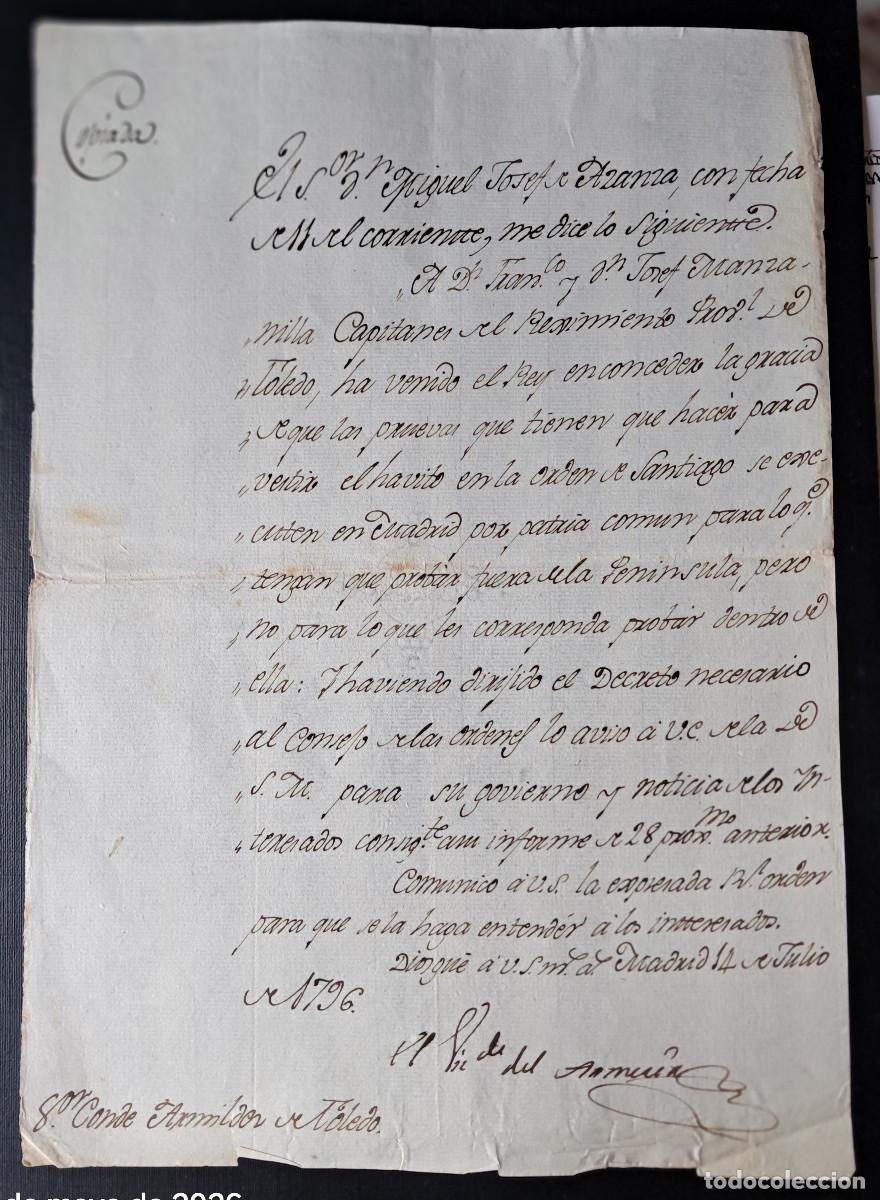 Copiada.
El S.or d.n Miguel Josef de Azanza, con fecha
de 11 del corriente, me dice lo siguiente.
„A D.n Fran.co y d.n Josef Manza-
„nilla Capitanes del Reximiento Prov.l de
„Toledo, ha venido el Rey en conceder la gracia
„de que las pruevas que tienen que hacér para
„vestir el havito en la orden de Santiago se exe-
„cuten en Madrid por patria comun para lo q.e
„tengan que probar fuera de la Peninsula, pero
„no para lo que les corresponda probár dentro de
„ella: Y haviendo dirijido el Decreto necesario
„al Consejo de las ordenes lo aviso á V.E. de la de
„S. M. para su govierno y noticia de los In-
„teresados consig.te a su informe de 28 prox.mo anterior.
Comunico á V.S. la expresada R.l orden
para que se la haga entendér á los intteresados.
Dios gue á V.S. m.s a.s Madrid 14 de Julio
de 1796.
El Vic de del Armería
S.or Conde Armildez de Toledo.
todocoleccion
de mayo de 2026